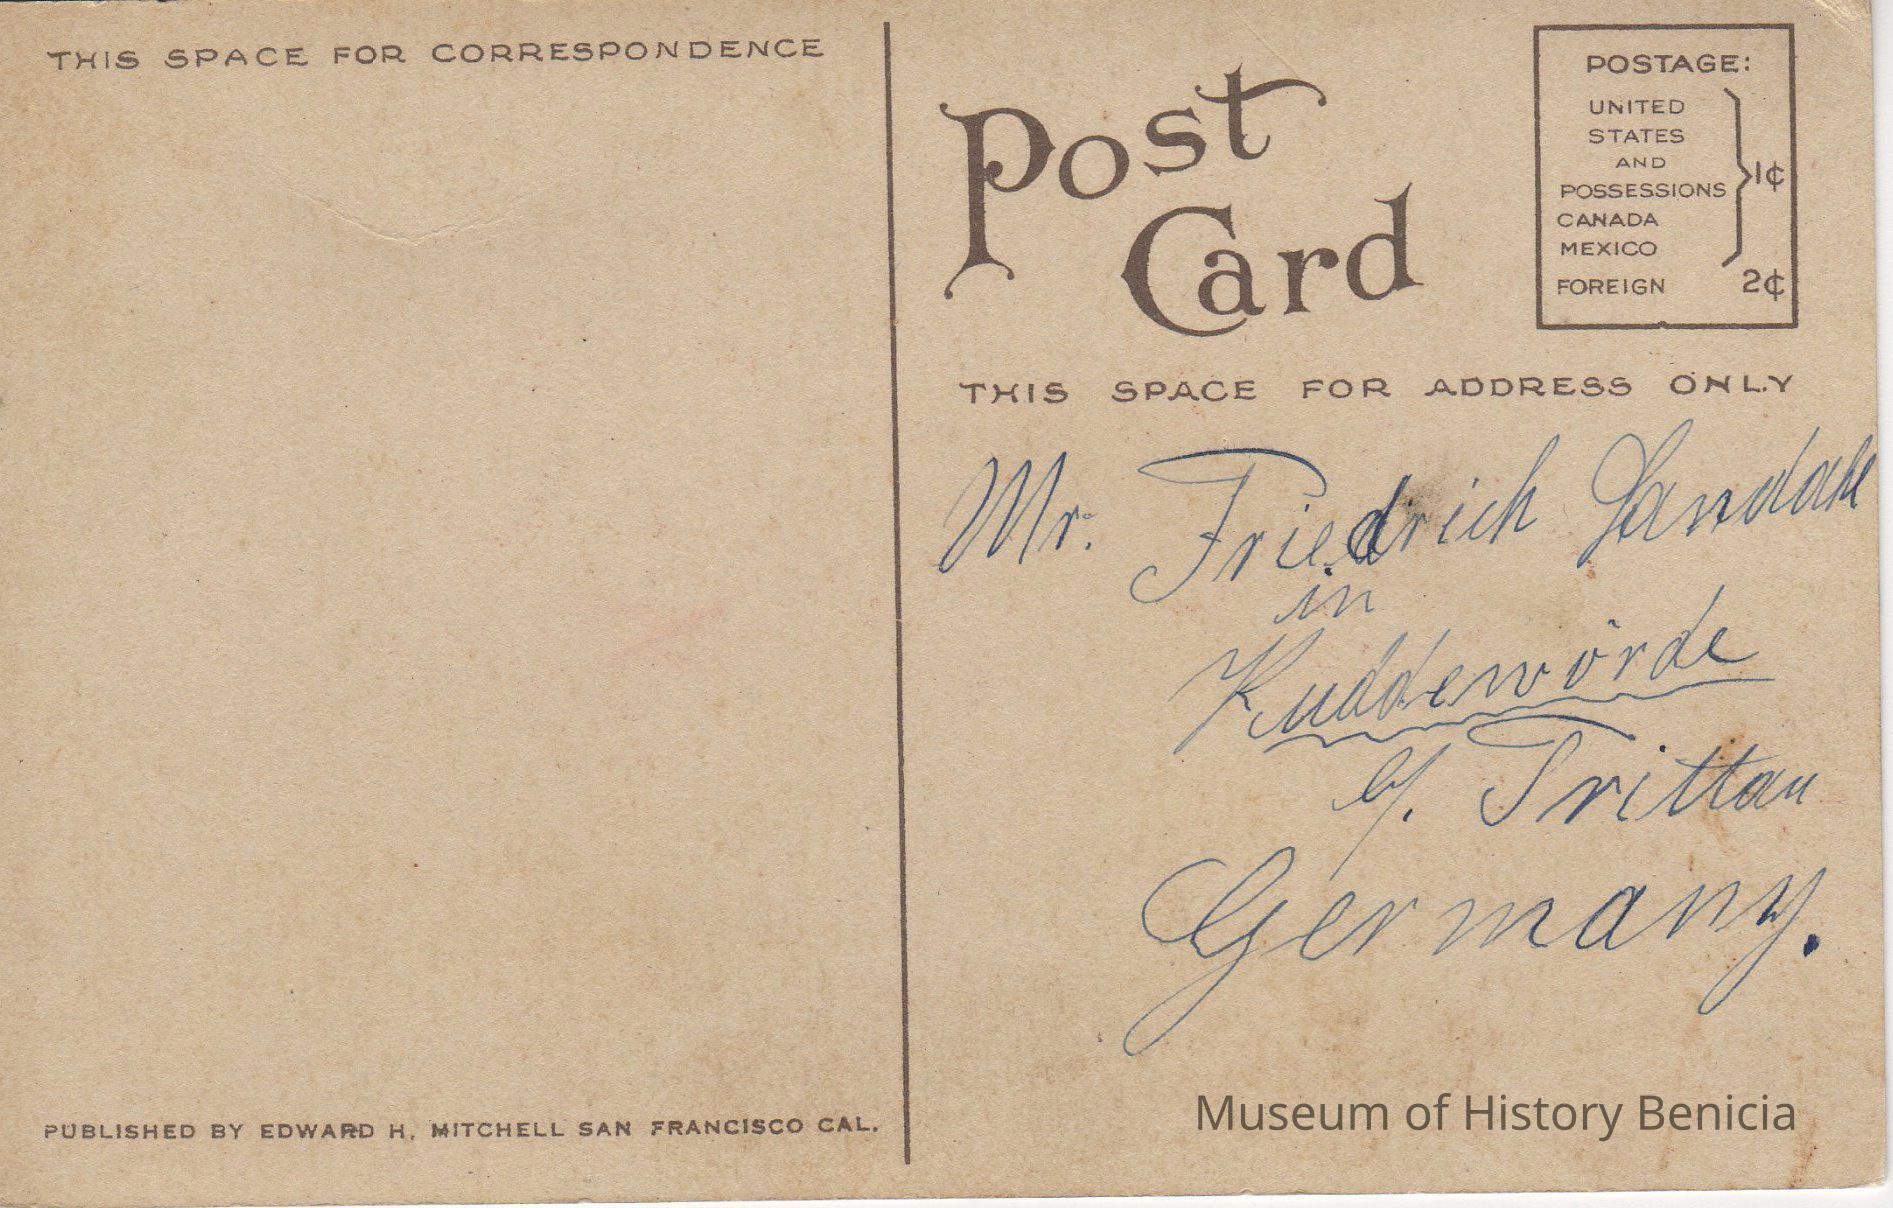 THIS SPACE FOR CORRESPONDENCE
Post
Card
POSTAGE:
UNITED
STATES
AND
POSSESSIONS
CANADA
MEXICO
1¢
FOREIGN 2¢
THIS SPACE FOR ADDRESS ONLY
Mr. Friedrich
in
Kuddewörde
b/. Trittau
Germany.
PUBLISHED BY EDWARD H. MITCHELL SAN FRANCISCO CAL.
Museum of History Benicia